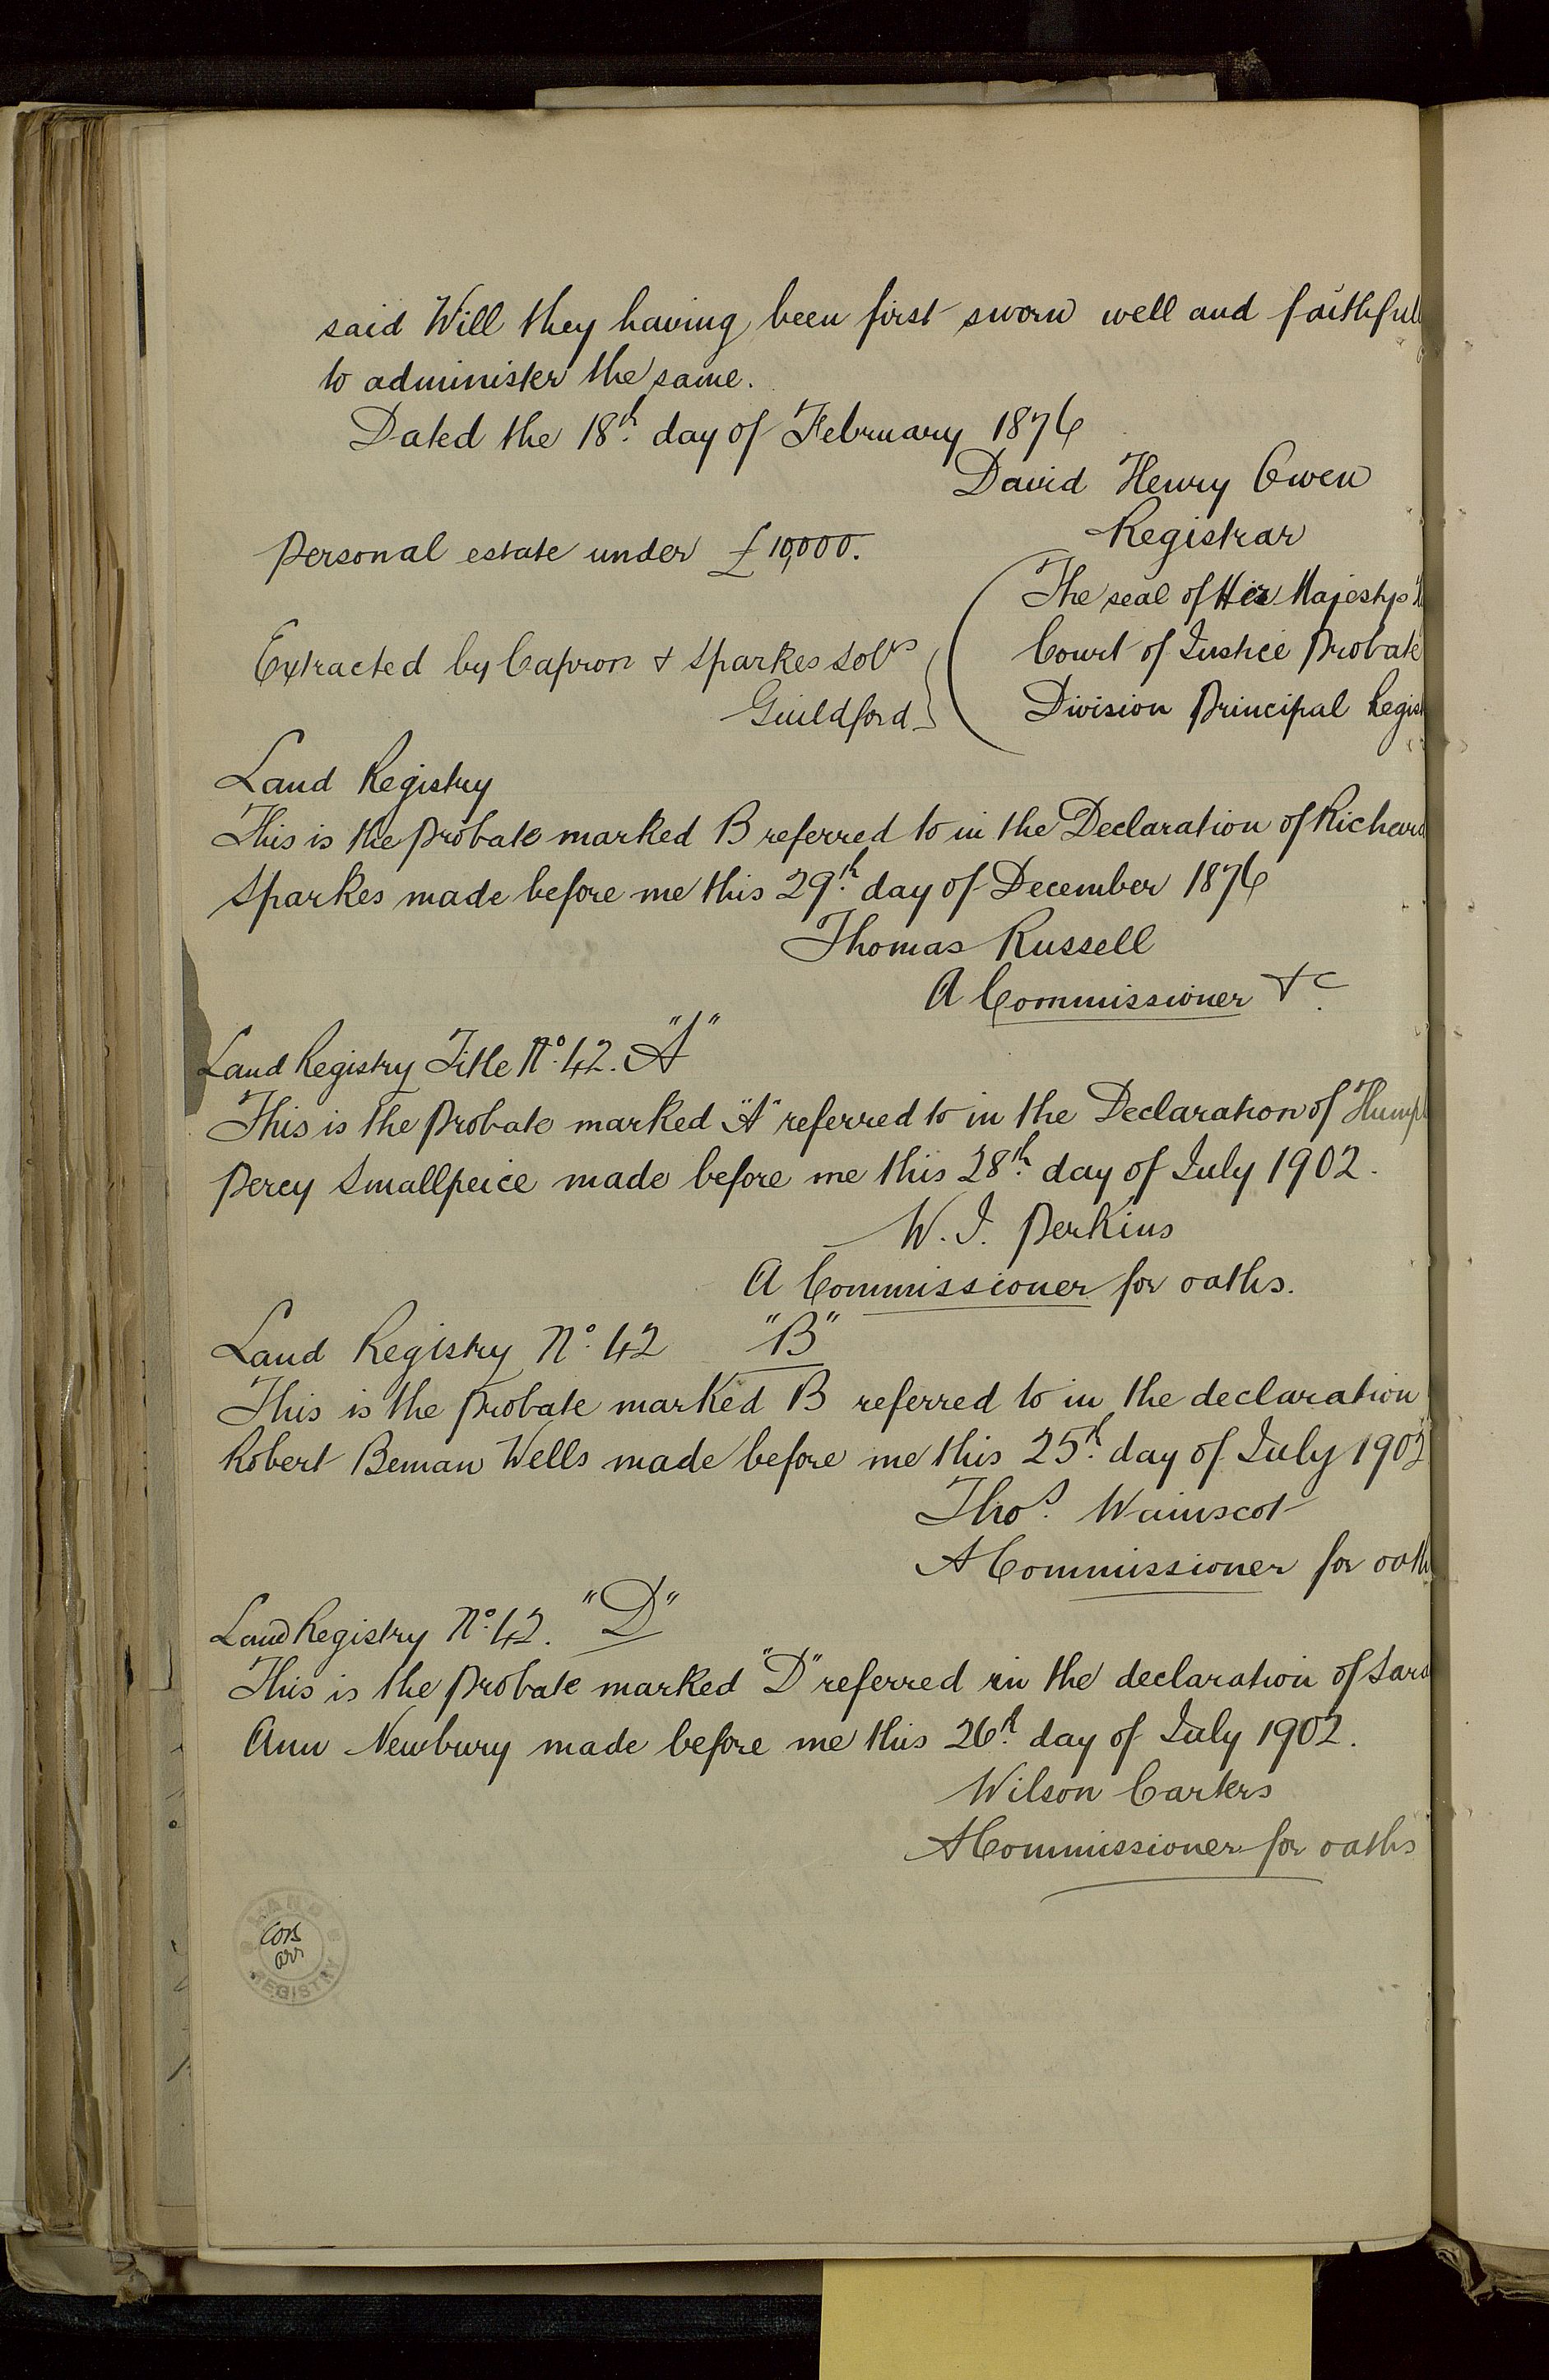 said Will they having been first sworn well and faithfull
to administer the same.
Dated the 18th. day of February 1876
David Henry Owen
Registrar
Personal estate under £10,000.
The seal of Her Majestys
Court of Justice Probate
Division Principal Regist
Extracted by Capron & Sparkes Solrs
Guildford
Land Registry
This is the Probate marked B referred to in the Declaration of Richard
Sparkes made before me this 29th. day of December 1876
Thomas Russell
A Commissioner &c.
Land Registry Title No. 42. "A"
This is the Probate marked "A" referred to in the Declaration of Humph
Percy Smallpeice made before me this 28th. day of July 1902.
W. J. Perkins
A Commissioner for oaths.
Land Registry No. 42 "B"
This is the Probate marked B referred to in the declaration
Robert Beman Wells made before me this 25th. day of July 1902
Thos. Wainscot
A Commissioner for oath
Land Registry No. 42. "D"
This is the Probate marked "D" referred in the declaration of Sara
Ann Newbury made before me this 26th. day of July 1902.
Wilson Carters
A Commissioner for oaths
LAND REGISTRY